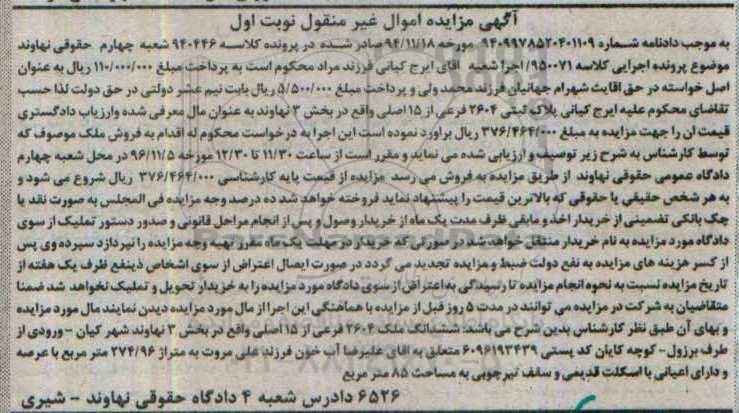 آگهی مزایده اموال غیر منقول نوبت اول
به موجب دادنامه شماره ۹۴۰۹۹۷۸۵۲۰۴۰۱۱۰۹ مورخه ۹۴/۱۱/۱۸ صادر شده در پرونده کلاسه ۹۴۰۴۴۶ شعبه چهارم حقوقی نهاوند
موضوع پرونده اجرایی کلاسه ۹۵۰۰۷۱/ اجرا شعبه اقای ایرج کیانی فرزند مراد محکوم است به پرداخت مبلغ ۱۱۰/۰۰۰/۰۰۰ ریال به عنوان
اصل خواسته در حق اقابت شهرام جهانیان فرزند محمد ولی و پرداخت مبلغ ۵/۵۰۰/۰۰۰ ریال بابت نیم عشر دولتی در حق دولت لذا حسب
تقاضای محکوم علیه ایرج کیانی پلاک ثبتی ۲۶۰۴ فرعی از ۱۵ اصلی واقع در بخش ۳ نهاوند به عنوان مال معرفی شده وارزیاب دادگستری
قیمت ان را جهت مزایده به مبلغ ۳۷۶/۴۶۴/۰۰۰ ریال براورد نموده است این اجرا به درخواست محکوم له اقدام به فروش ملک موصوف که
توسط کارشناس به شرح زیر توصیف و ارزیابی شده می نماید و مقرر است از ساعت ۱۱/۳۰ تا ۱۲/۳۰ مورخه ۹۶/۱۱/۵ در محل شعبه چهارم
دادگاه عمومی حقوقی نهاوند از طریق مزایده به فروش می رسد مزایده از قیمت پایه کارشناسی ۳۷۶/۴۶۴/۰۰۰ ریال شروع می شود و
به هر شخص حقیقی یا حقوقی که بالاترین قیمت را پیشنهاد نماید فروخته خواهد شد ده درصد وجه مزایده فی المجلس به صورت نقد یا
چک بانکی تضمینی از خریدار اخذ و مابقی ظرف مدت یک ماه از خریدار وصول و پس از انجام مراحل قانونی و صدور دستور تملیک از سوی
دادگاه مورد مزایده به نام خریدار منتقل خواهد شد در صورتی که خریدار در مهلت یک ماه مقرر تهیه وجه مزایده را نپردازد سپرده وی پس
از کسر هزینه های مزایده به نفع دولت ضبط و مزایده تجدید می گردد در صورت ایصال اعتراض از سوی اشخاص ذینفع ظرف یک هفته از
تاریخ مزایده نسبت به نحوه انجام مزایده تا رسیدگی به اعتراض از سوی دادگاه مورد مزایده را به خریدار تحویل و تملیک نخواهد شد ضمنا
متقاضیان به شرکت در مزایده می توانند در مدت ۵ روز قبل از مزایده با هماهنگی این اجرا از مال مورد مزایده دیدن نمایند مال مورد مزایده
و بهای آن طبق نظر کارشناس بدین شرح می باشد: ششدانگ ملک ۲۶۰۴ فرعی از ۱۵ اصلی واقع در بخش ۳ نهاوند شهر کیان - ورودی از
طرف برزول- کوچه کایان کد پستی ۶۰۹۶۱۹۳۴۳۹ متعلق به اقای علیرضا آب خون فرزند علی مروت به متراژ ۲۷۴/۹۶ متر مربع با عرصه
و دارای اعیانی با اسکلت قدیمی و سقف تیرچوبی به مساحت ۸۵ متر مربع
۶۵۲۶ دادرس شعبه ۴ دادگاه حقوقی نهاوند - شیری